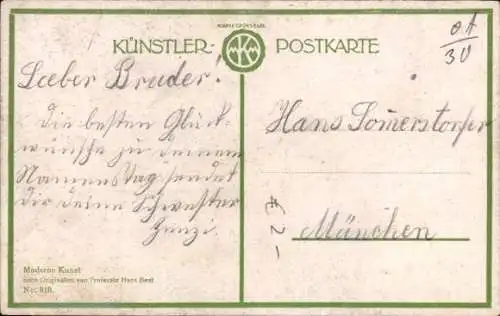 KÜNSTLER- POSTKARTE
Lieber Bruder!
Die besten Glück-
wünsche zu deinem
Namenstag sendet
dir deine Schwester
Moderne Kunst
nach Originalen von Professor Hans Best
Nr. 818.
Hans Somerstorfer
München
€ 2-
30